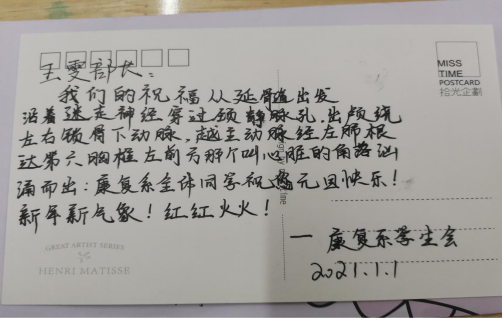 王雯部长：
MISS
TIME
POSTCARD
拾光企劃
我们的祝福从延髓出发
沿着迷走神经穿过颈静脉孔，出颅绕
左右锁骨下动脉，越主动脉经左肺根
达第六胸椎左前方那个叫心脏的角落汹
涌而出：康复系全体同学祝您元旦快乐！
新年新气象！红红火火！
GREAT ARTIST SERIES
HENRI MATISSE
一 康复系学生会
2021.1.1